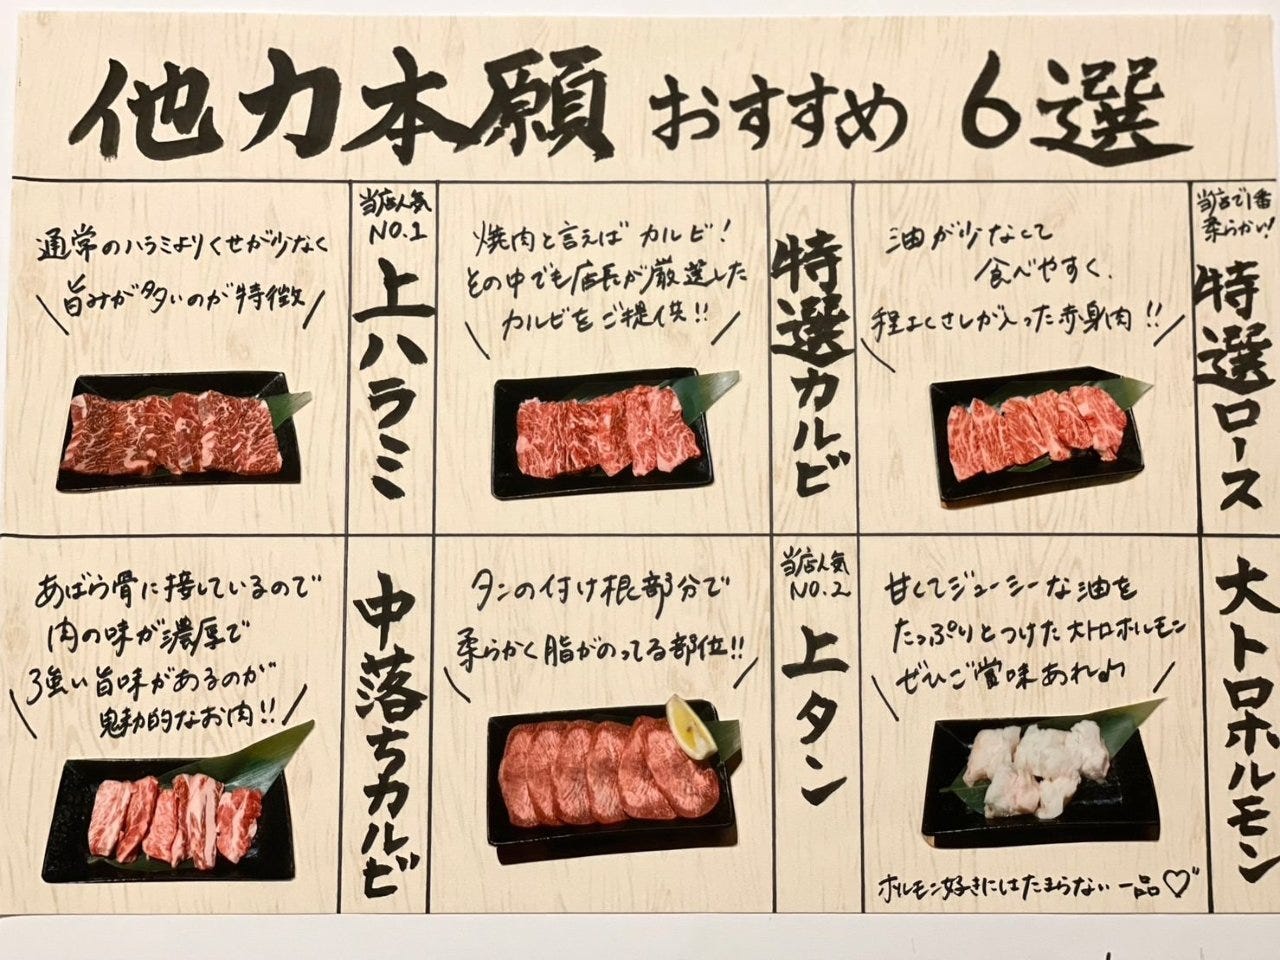 他力本願 おすすめ 6選
当店人気
NO.1
上ハラミ
通常のハラミよりくせが少なく
旨みが多いのが特徴
特選カルビ
焼肉と言えば カルビ!
その中でも店長が厳選した
カルビをご提供!!
当店で1番
柔らかい!
特選ロース
油が少なくて
食べやすく、
程よくさしが入った赤身肉!!
中落ちカルビ
あばら骨に接しているので
肉の味が濃厚で
強い旨味があるのが
魅力的なお肉!!
当店人気
NO.2
上タン
タンの付け根部分で
柔らかく脂がのってる部位!!
大トロホルモン
甘くてジューシーな油を
たっぷりとつけた大トロホルモン
ぜひご賞味あれ♪
ホルモン好きにはたまらない一品♡